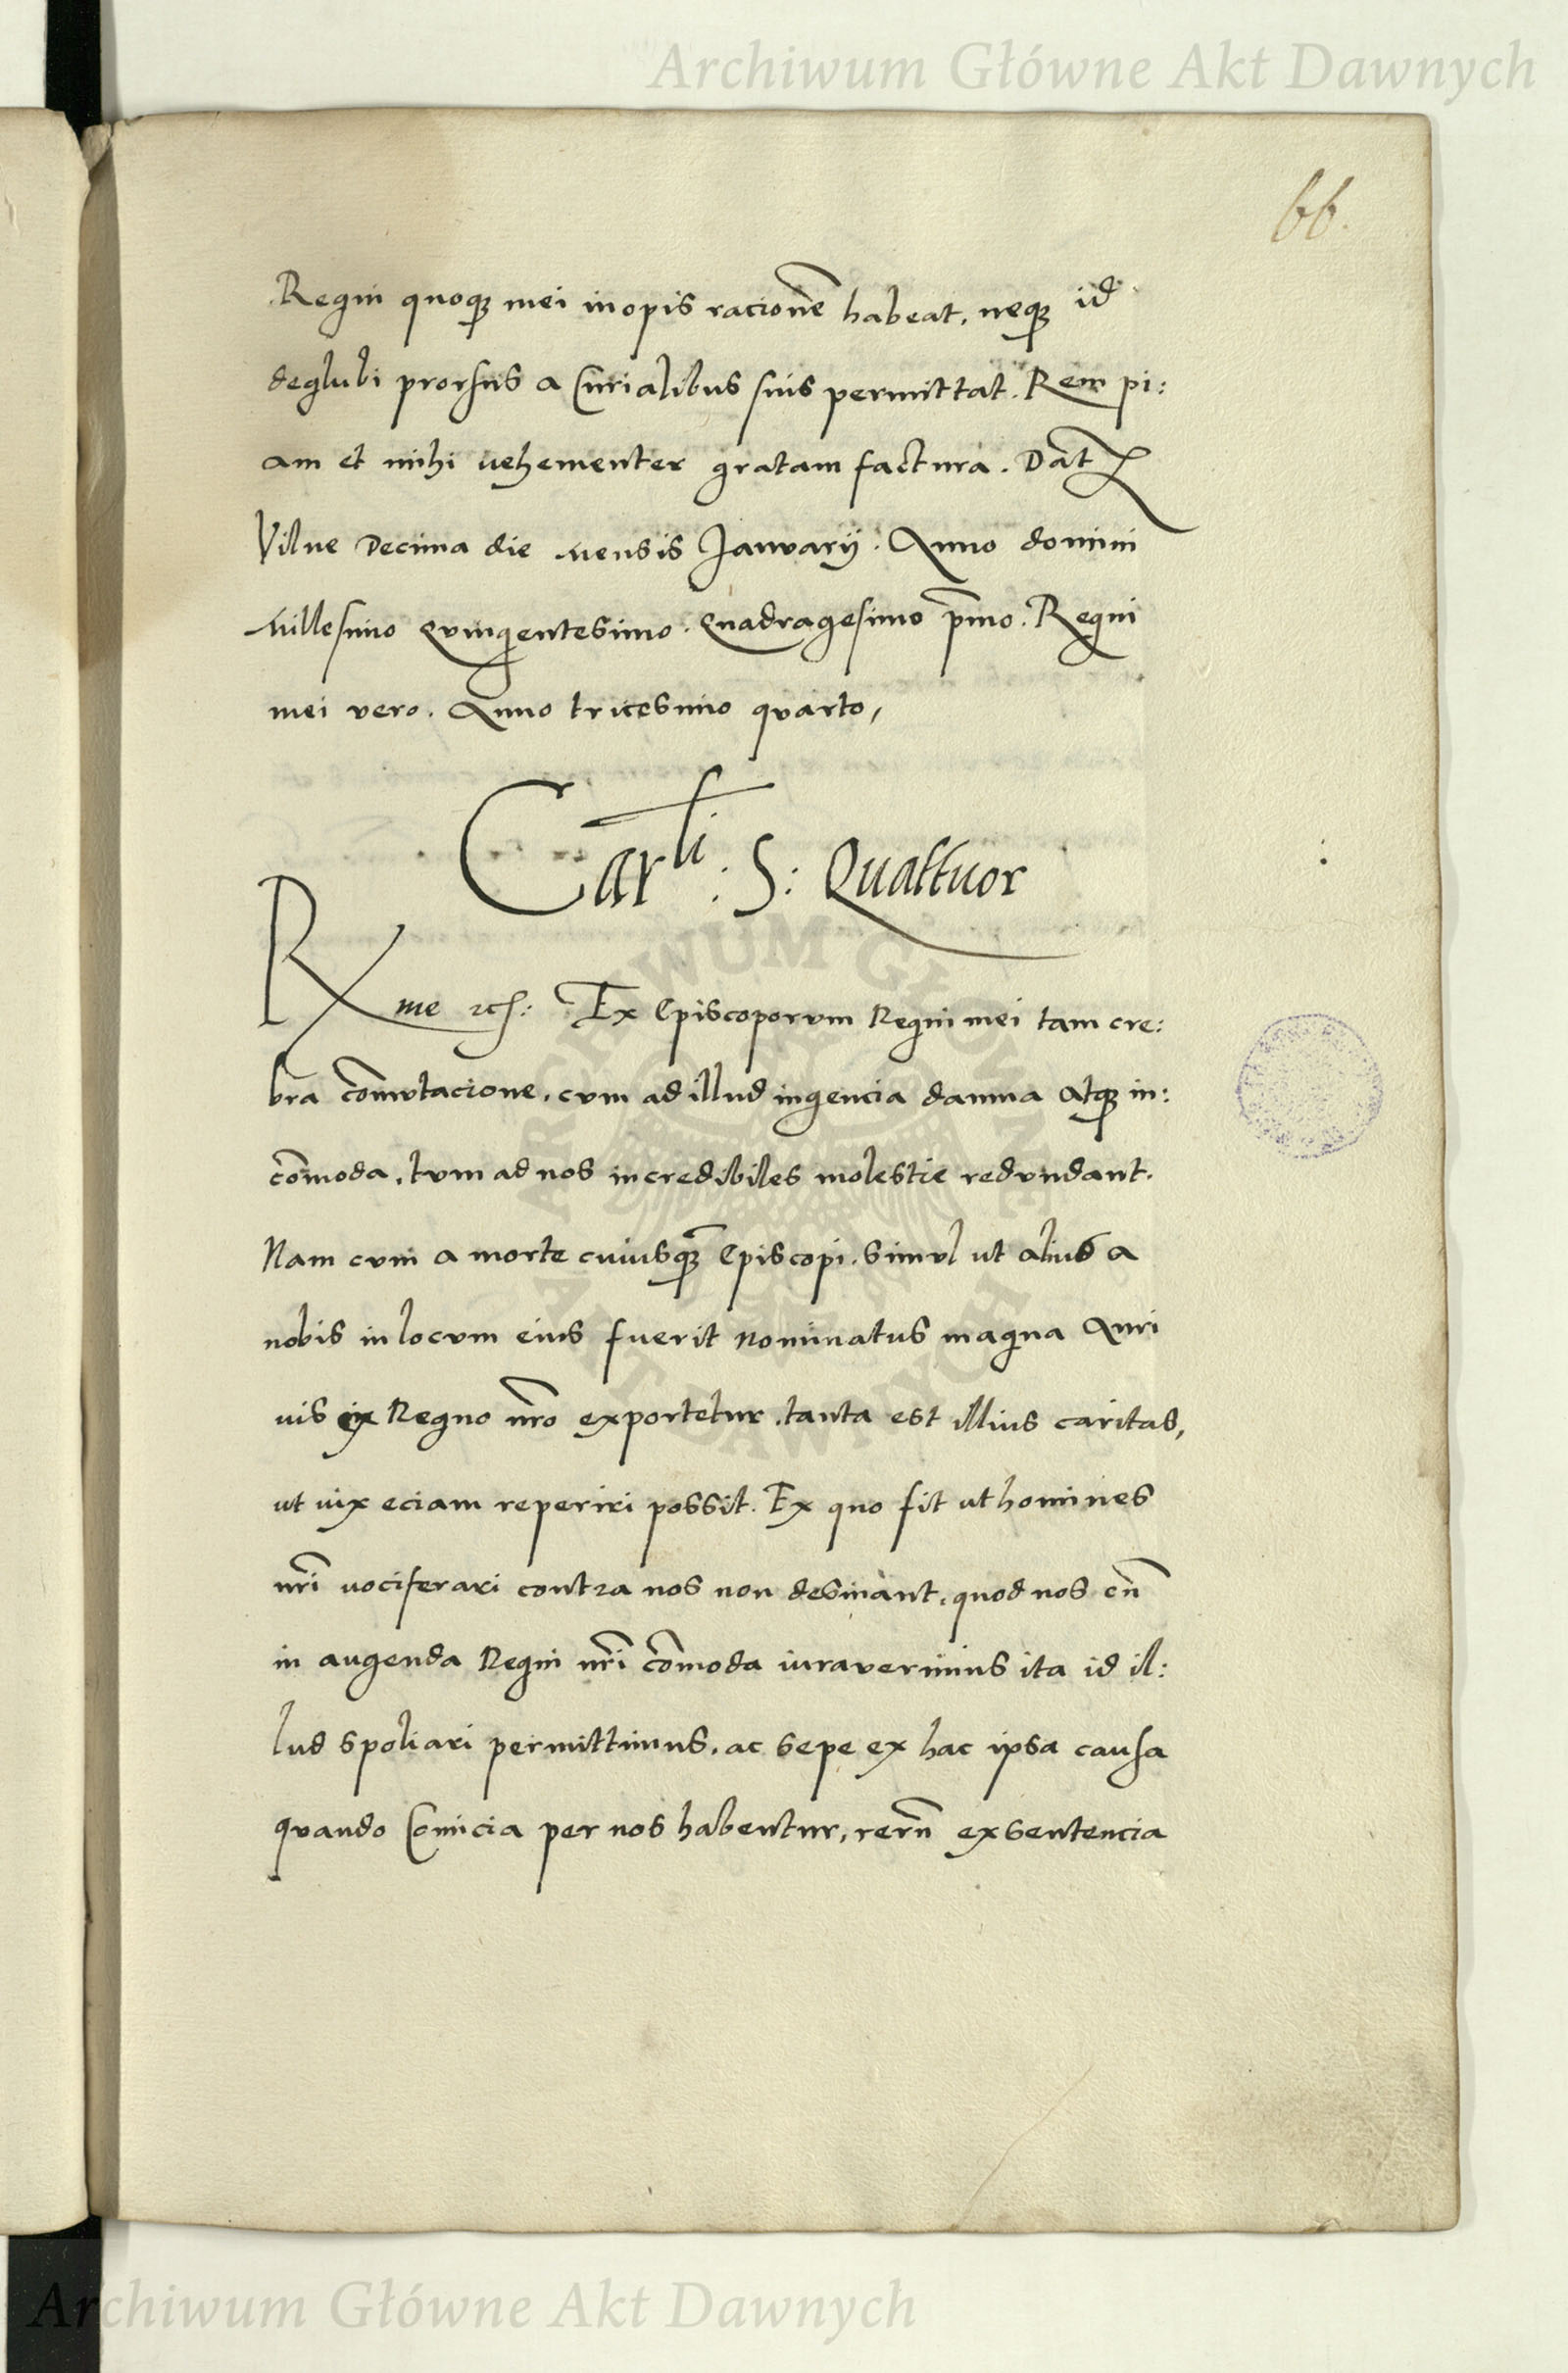 Archiwum Główne Akt Dawnych
66.
Regni quoqꝫ mei inopis racionē habeat, neqꝫ id
deglubi prorsus a Curialibus suis permittat. Rem pi:
am et mihi vehementer gratam factura. Dat
Vilne Decima die Mensis Januarij. Anno domini
Millesimo qvingentesimo. Quadragesimo p̄mo. Regni
mei vero. Anno tricesimo qvarto,
Carli: S: Quattuor
Rme etc: Ex Episcoporvm Regni mei tam cre:
bra com̄vtacione, cvm ad illud ingencia damna atqꝫ in:
com̄oda, tvm ad nos incredibiles molestie redvndant.
Nam cvm a morte cuiusqꝫ Episcopi, simvl ut alius a
nobis in locvm eius fuerit nominatus magna Auri
uis ex Regno nr̄o exportetur, tanta est illius caritas,
ut uix eciam reperiri possit. Ex quo fit ut homines
nr̄i uociferari contra nos non desinant, quod nos cū
in augenda Regni nr̄i com̄oda iuraverimus ita id il:
lud spoliari permittimus, ac sepe ex hac ipsa causa
qvando Comicia per nos habentur, rerū ex sentencia
ARCHIWUM GŁÓWNE
AKT DAWNYCH
Archiwum Główne Akt Dawnych